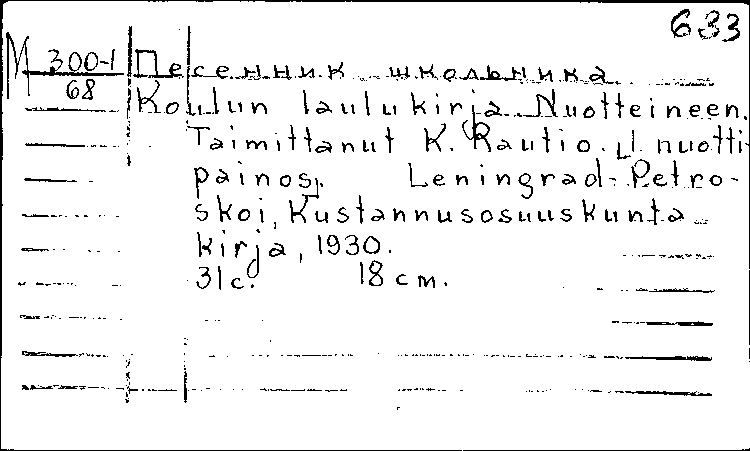 633
М 300-1
68
Песенник школьника
Koulun laulukirja Nuotteineen.
Taimittanut K. Rautio. [I nuotti-
painos]. Leningrad-Petro-
skoi, Kustannusosuuskunta
kirja, 1930.
31c. 18cm.